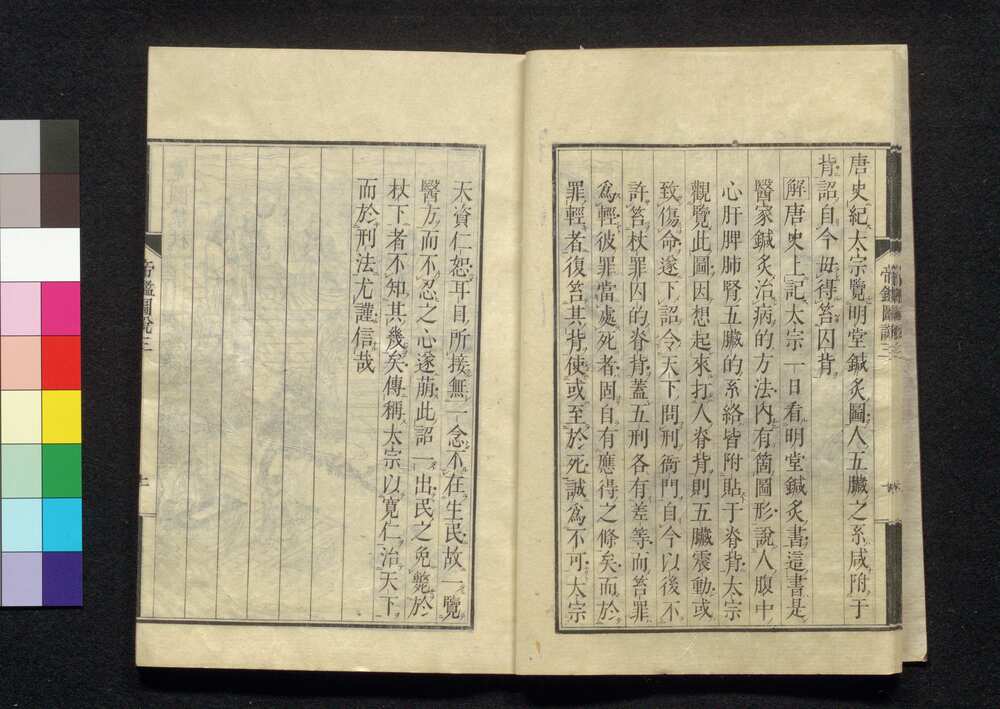 唐史紀太宗覽明堂鍼灸圖人五臟之系咸附于
背詔自今毋得笞囚背
解唐史上記太宗一日看明堂鍼灸書這書是
醫家鍼灸治病的方法内有箇圖形說人腹中
心肝脾肺腎五臟的系絡皆附貼于脊背太宗
觀覽此圖因想起來打人脊背則五臟震動或
致傷命遂下詔令天下問刑衙門自今以後不
許笞杖罪囚的脊背蓋五刑各有差等而笞罪
爲輕彼罪當處死者固自有應得之條矣而於
罪輕者復笞其背使或至於死誠爲不可太宗
天資仁恕耳目所接無一念不在生民故一覽
醫方而不忍之心遂萌此詔一出民之免斃於
杖下者不知其幾矣傳稱太宗以寬仁治天下
而於刑法尤謹信哉
帝鑑圖說三